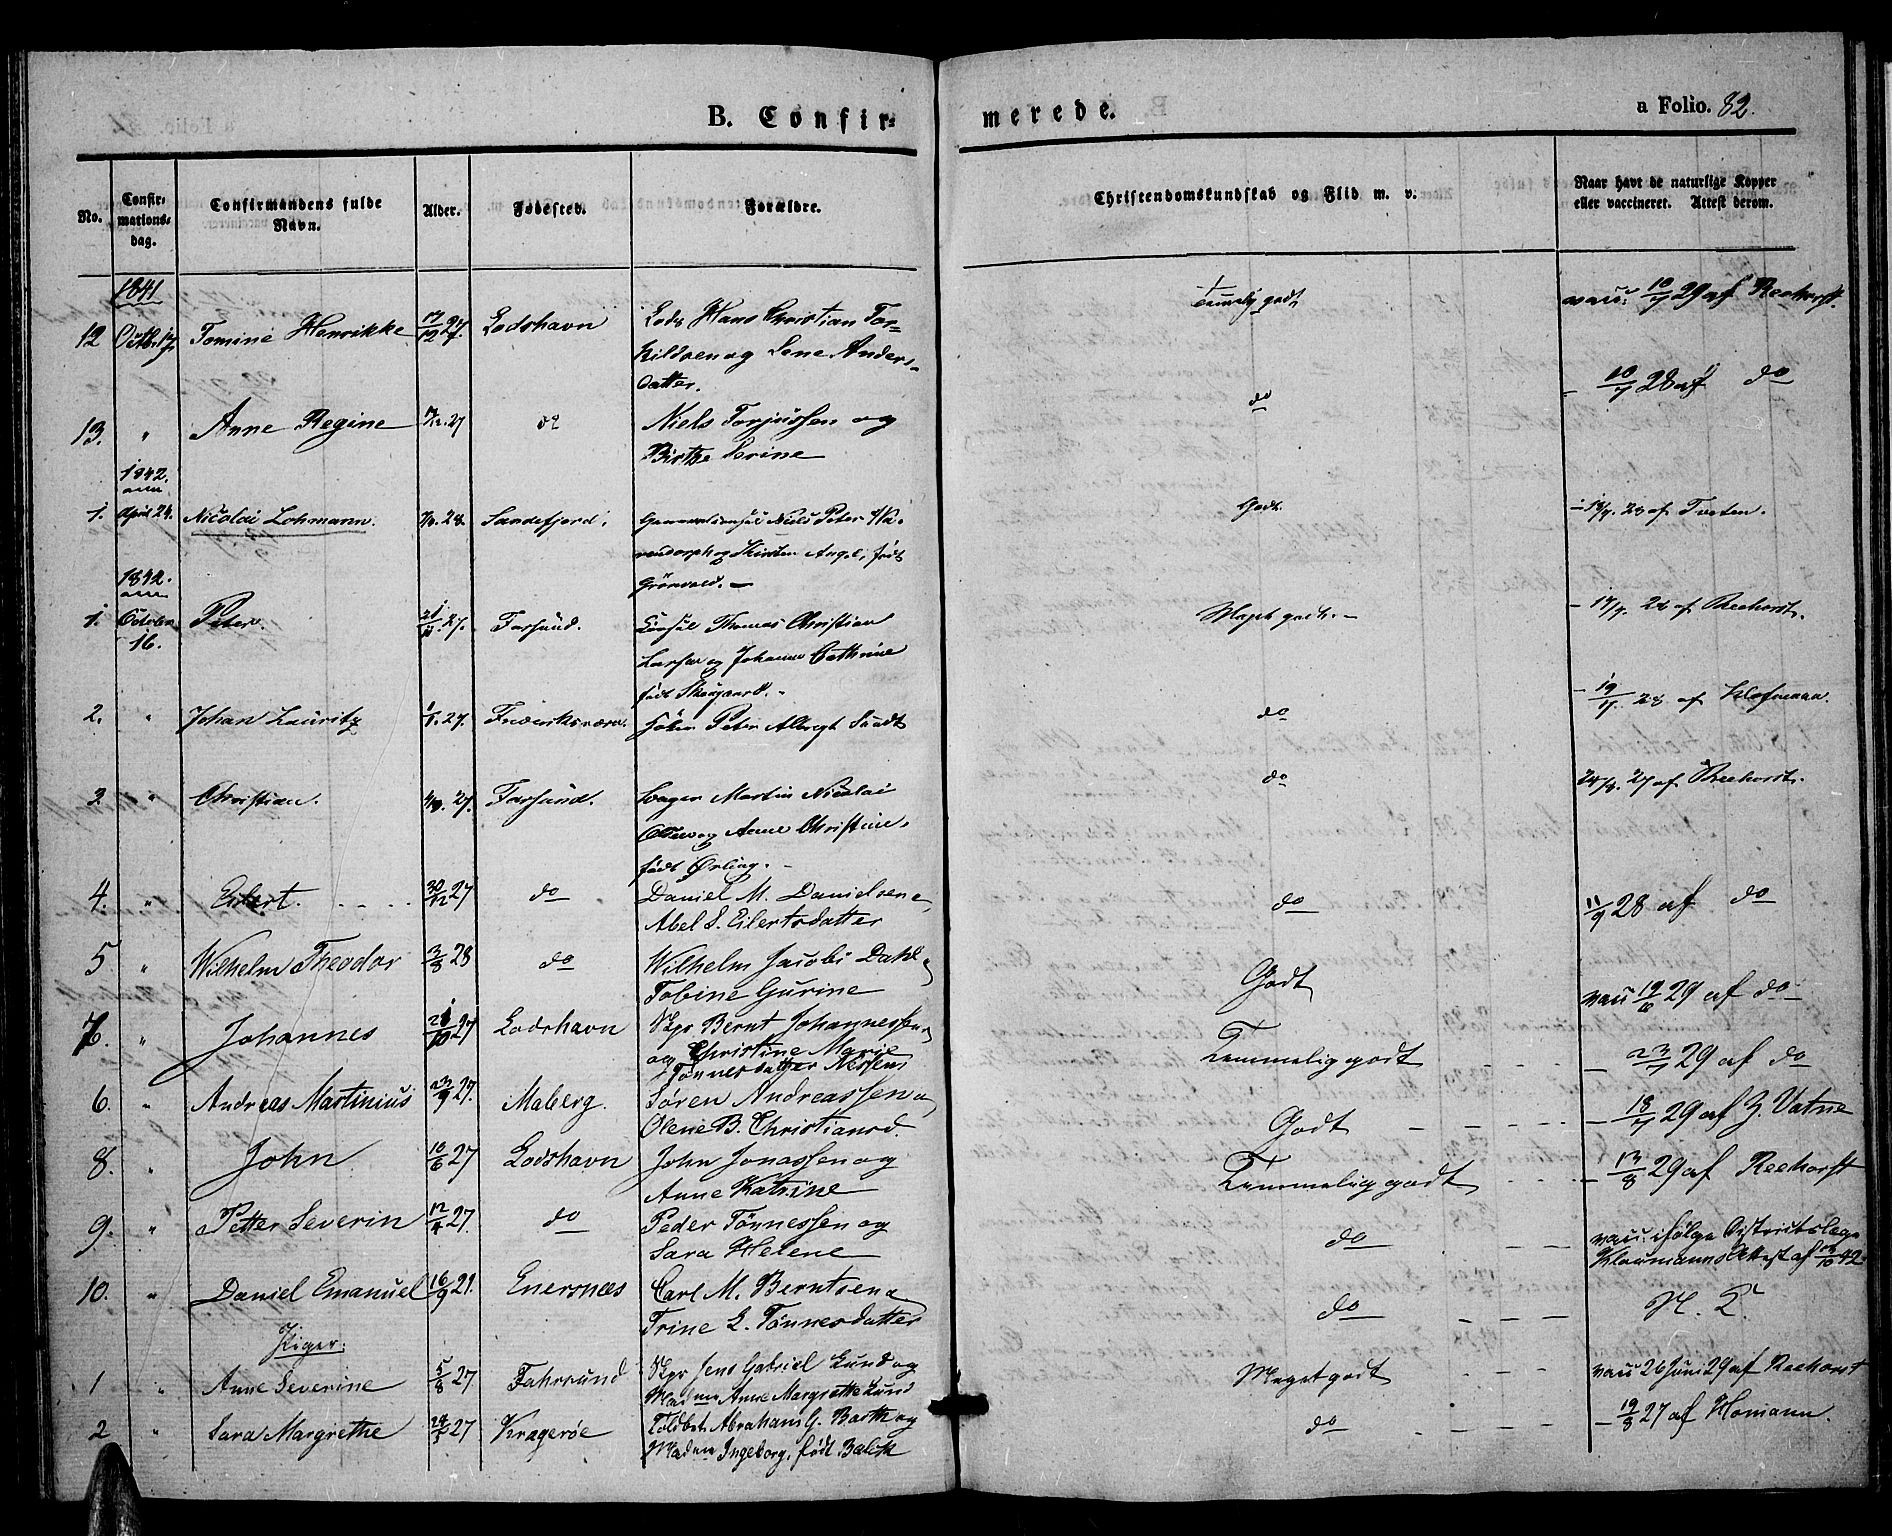 B. Confir-
merede.
a Folio. 82.
No.
Confir-
mations-
dag.
Confirmandens fulde
Navn.
Alder.
Fødested.
Forældre.
Christendomskundskab og Flid m. v.
Naar havt de naturlige Kopper
eller vaccineret. Attest derom.
1841
12 Octb. 17. Tomine Henrikke 17/12 27. Lodshavn Lods Hans Christian Tor-
kildsen og Lene Anders-
datter.
temmelig godt
vacc. 10/7 29 af Reehorst.
13. " Anne Regine 17/12 27 do Niels Torjussen og
Birthe Serine
do
- 10/7 28 af do
1842.
1. April 24. Nicolai Lohmann. 28. Sandefjord. Niels Peter
og Kirsten Angel, født
Grönvold. -
Godt.
af Tveten.
1842.
1. October Peter. 21/11 27. Farsund. Consul Thomas Christian
16.
Larsen og Johanne Cathrine
født Skougaard. -
Meget godt. -
- 17/9 28 af Reehorst.
2. " Johan Lauritz 27. Frideriksværn. Peter Albregt Sandt
do
- 19/7 28 af Klofmann.
3 " Christian. 27. Farsund. Martin Nicolai
Olsen og Anne Christine,
født Örling. -
do
24/9 27 af Reehorst.
4. " Eilert. 30/12 27 do Daniel M. Danielsen &
Abel S. Eilertsdatter
do
11/9 28 af do
5 " Wilhelm Theodor 3/8 28 do Wilhelm Jacobi Dahl &
Tobine Gurine
Godt
vacc 19/6 29 af do
7. " Johannes 21/10 27 Lodshavn Skpr Bernt Johannessen
og Christine Marie
Tönnesdatter Nissen
Temmelig godt
- 23/7 29 af do
6. " Andreas Martinius 23/9 27. Maberg. Søren Andreassen &
Olene B. Christiansd.
Godt
- 18/7 29 af Z. Vatne
8. " John 10/6 27 Lodshavn John Jonassen og
Anne Katrine
Temmelig godt
- 13/8 29 af Reehorst
9. " Petter Severin 12/4 27 do Peder Tönnessen og
Sara Helene
do
vacc. ifölge Districtslæge
Kloumanns Attest af 13/10 42
10. " Daniel Emanuel 16/9 21. Enersnæs Carl M. Berntsen &
Trine L. Tönnesdatter
do
N. K.
Piger.
1 " Anne Severine 5/8 27 Fahrsund Skpr Jens Gabriel Lund og
Madm Anne Margrethe Lund
Meget godt
vacc 26 Juni 29 af Reehorst
2 " Sara Margrethe 27 Kragerøe Toldbet. Abraham G. Barth og
Madm Ingeborg, født Balch
do
- 19/8 27 af Homann.